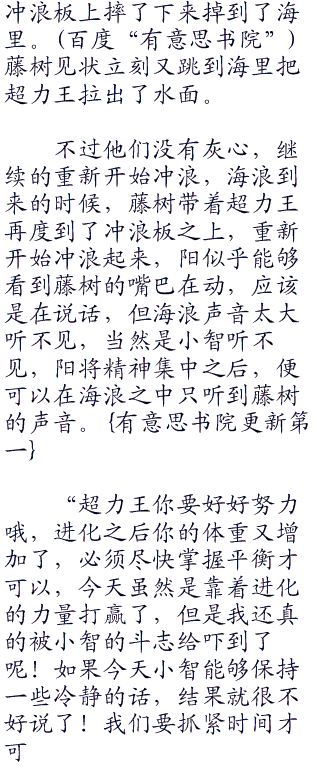 冲浪板上摔了下来掉到了海
里。(百度“有意思书院”)
藤树见状立刻又跳到海里把
超力王拉出了水面。
不过他们没有灰心，继
续的重新开始冲浪，海浪到
来的时候，藤树带着超力王
再度到了冲浪板之上，重新
开始冲浪起来，阳似乎能够
看到藤树的嘴巴在动，应该
是在说话，但海浪声音太大
听不见，当然是小智听不
见，阳将精神集中之后，便
可以在海浪之中只听到藤树
的声音。{有意思书院更新第
一}
“超力王你要好好努力
哦，进化之后你的体重又增
加了，必须尽快掌握平衡才
可以，今天虽然是靠着进化
的力量打赢了，但是我还真
的被小智的斗志给吓到了
呢！如果今天小智能够保持
一些冷静的话，结果就很不
好说了！我们要抓紧时间才
可